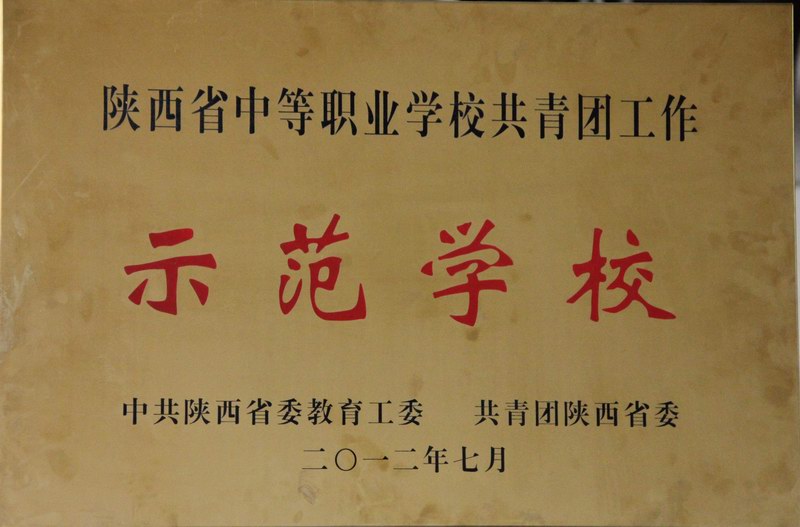 陕西省中等职业学校共青团工作
示范学校
中共陕西省委教育工委 共青团陕西省委
二〇一二年七月